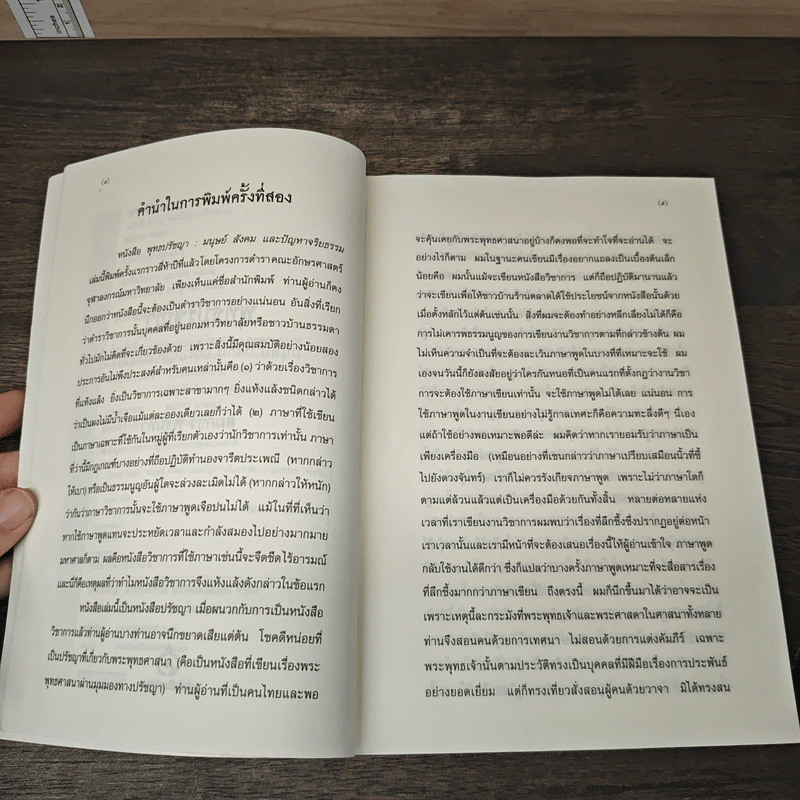 inches 1 2
(๔)
คำนำในการพิมพ์ครั้งที่สอง
หนังสือ พุทธปรัชญา : มนุษย์ สังคม และปัญหาจริยธรรม
เล่มนี้พิมพ์ครั้งแรกราวสี่ห้าปีที่แล้วโดยโครงการตำราคณะอักษรศาสตร์
จุฬาลงกรณ์มหาวิทยาลัย เพียงเห็นแค่ชื่อสำนักพิมพ์ ท่านผู้อ่านก็คง
นึกออกว่าหนังสือนี้จะต้องเป็นตำราวิชาการอย่างแน่นอน อันสิ่งที่เรียก
ว่าตำราวิชาการนั้นบุคคลที่อยู่นอกมหาวิทยาลัยหรือชาวบ้านธรรมดา
ทั่วไปมักไม่คิดที่จะเกี่ยวข้องด้วย เพราะสิ่งนี้มีคุณสมบัติอย่างน้อยสอง
ประการอันไม่พึงประสงค์สำหรับคนเหล่านั้นคือ (๑) ว่าด้วยเรื่องวิชาการ
ที่แห้งแล้ง ยิ่งเป็นวิชาการเฉพาะสาขามากๆ ยิ่งแห้งแล้งชนิดกล่าวได้
ว่าเป็นผงไม่มีน้ำเจือแม้แต่ละอองเดียวเลยก็ว่าได้ (๒) ภาษาที่ใช้เขียน
เป็นภาษาเฉพาะที่ใช้กันในหมู่ผู้ที่เรียกตัวเองว่านักวิชาการเท่านั้น ภาษา
ที่ว่านี้มีกฎเกณฑ์บางอย่างที่ถือปฏิบัติทำนองจารีตประเพณี (หากกล่าว
ให้เบา) หรือเป็นธรรมนูญอันผู้ใดจะล่วงละเมิดไม่ได้ (หากกล่าวให้หนัก)
ว่ากันว่าภาษาวิชาการนั้นจะใช้ภาษาพูดเจือปนไม่ได้ แม้ในที่ที่เห็นว่า
หากใช้ภาษาพูดแทนจะประหยัดเวลาและกำลังสมองไปอย่างมากมาย
มหาศาลก็ตาม ผลคือหนังสือวิชาการที่ใช้ภาษาเช่นนี้จะจืดชืดไร้อารมณ์
และนี่ก็คือเหตุผลที่ว่าทำไมหนังสือวิชาการจึงแห้งแล้งดังกล่าวในข้อแรก
หนังสือเล่มนี้เป็นหนังสือปรัชญา เมื่อผนวกกับการเป็นหนังสือ
วิชาการแล้วท่านผู้อ่านบางท่านอาจนึกขยาดเสียแต่ต้น โชคดีหน่อยที่
เป็นปรัชญาที่เกี่ยวกับพระพุทธศาสนา (คือเป็นหนังสือที่เขียนเรื่องพระ
พุทธศาสนาผ่านมุมมองทางปรัชญา) ท่านผู้อ่านที่เป็นคนไทยและพอ
(๕)
จะคุ้นเคยกับพระพุทธศาสนาอยู่บ้างก็คงพอที่จะทำใจที่จะอ่านได้ จะ
อย่างไรก็ตาม ผมในฐานะคนเขียนมีเรื่องอยากแถลงเป็นเบื้องต้นเล็ก
น้อยคือ ผมนั้นแม้จะเขียนหนังสือวิชาการ แต่ก็ถือปฏิบัติมานานแล้ว
ว่าจะเขียนเพื่อให้ชาวบ้านร้านตลาดได้ใช้ประโยชน์จากหนังสือนั้นด้วย
เมื่อตั้งหลักไว้แต่ต้นเช่นนั้น สิ่งที่ผมจะต้องทำอย่างหลีกเลี่ยงไม่ได้ก็คือ
การไม่เคารพธรรมนูญของการเขียนงานวิชาการตามที่กล่าวข้างต้น ผม
ไม่เห็นความจำเป็นที่จะต้องละเว้นภาษาพูดในบางที่ที่เหมาะจะใช้ ผม
เองจนวันนี้ก็ยังสงสัยอยู่ว่าใครกันหนอที่เป็นคนแรกที่ตั้งกฎว่างานวิชา
การจะต้องใช้ภาษาเขียนเท่านั้น จะใช้ภาษาพูดไม่ได้เลย แน่นอน การ
ใช้ภาษาพูดในงานเขียนอย่างไม่รู้กาลเทศะก็คือความทะลึ่งดีๆ นี่เอง
แต่ถ้าใช้อย่างพอเหมาะพอดีล่ะ ผมคิดว่าหากเรายอมรับว่าภาษาเป็น
เพียงเครื่องมือ (เหมือนอย่างที่เซนกล่าวว่าภาษาเปรียบเสมือนนิ้วที่ชี้
ไปยังดวงจันทร์) เราก็ไม่ควรรังเกียจภาษาพูด เพราะไม่ว่าภาษาใดก็
ตามแต่ล้วนแล้วแต่เป็นเครื่องมือด้วยกันทั้งสิ้น หลายต่อหลายแห่ง
เวลาที่เราเขียนงานวิชาการผมพบว่าเรื่องที่ลึกซึ้งซึ่งปรากฏอยู่ต่อหน้า
เราเวลานั้นและเรามีหน้าที่จะต้องเสนอเรื่องนี้ให้ผู้อ่านเข้าใจ ภาษาพูด
กลับใช้งานได้ดีกว่า ซึ่งก็แปลว่าบางครั้งภาษาพูดเหมาะที่จะสื่อสารเรื่อง
ที่ลึกซึ้งมากกว่าภาษาเขียน ถึงตรงนี้ ผมก็นึกขึ้นมาได้ว่าอาจจะเป็น
เพราะเหตุนี้ละกระมังที่พระพุทธเจ้าและพระศาสดาในศาสนาทั้งหลาย
ท่านจึงสอนคนด้วยการเทศนา ไม่สอนด้วยการแต่งคัมภีร์ เฉพาะ
พระพุทธเจ้านั้นตามประวัติทรงเป็นบุคคลที่มีฝีมือเรื่องการประพันธ์
อย่างยอดเยี่ยม แต่ก็ทรงเที่ยวสั่งสอนผู้คนด้วยวาจา มิได้ทรงสน